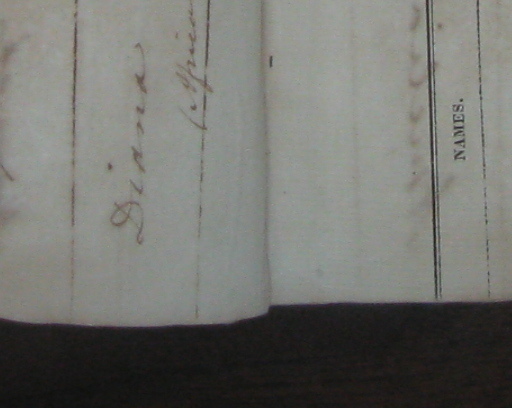 Diana
(Africa
NAMES.